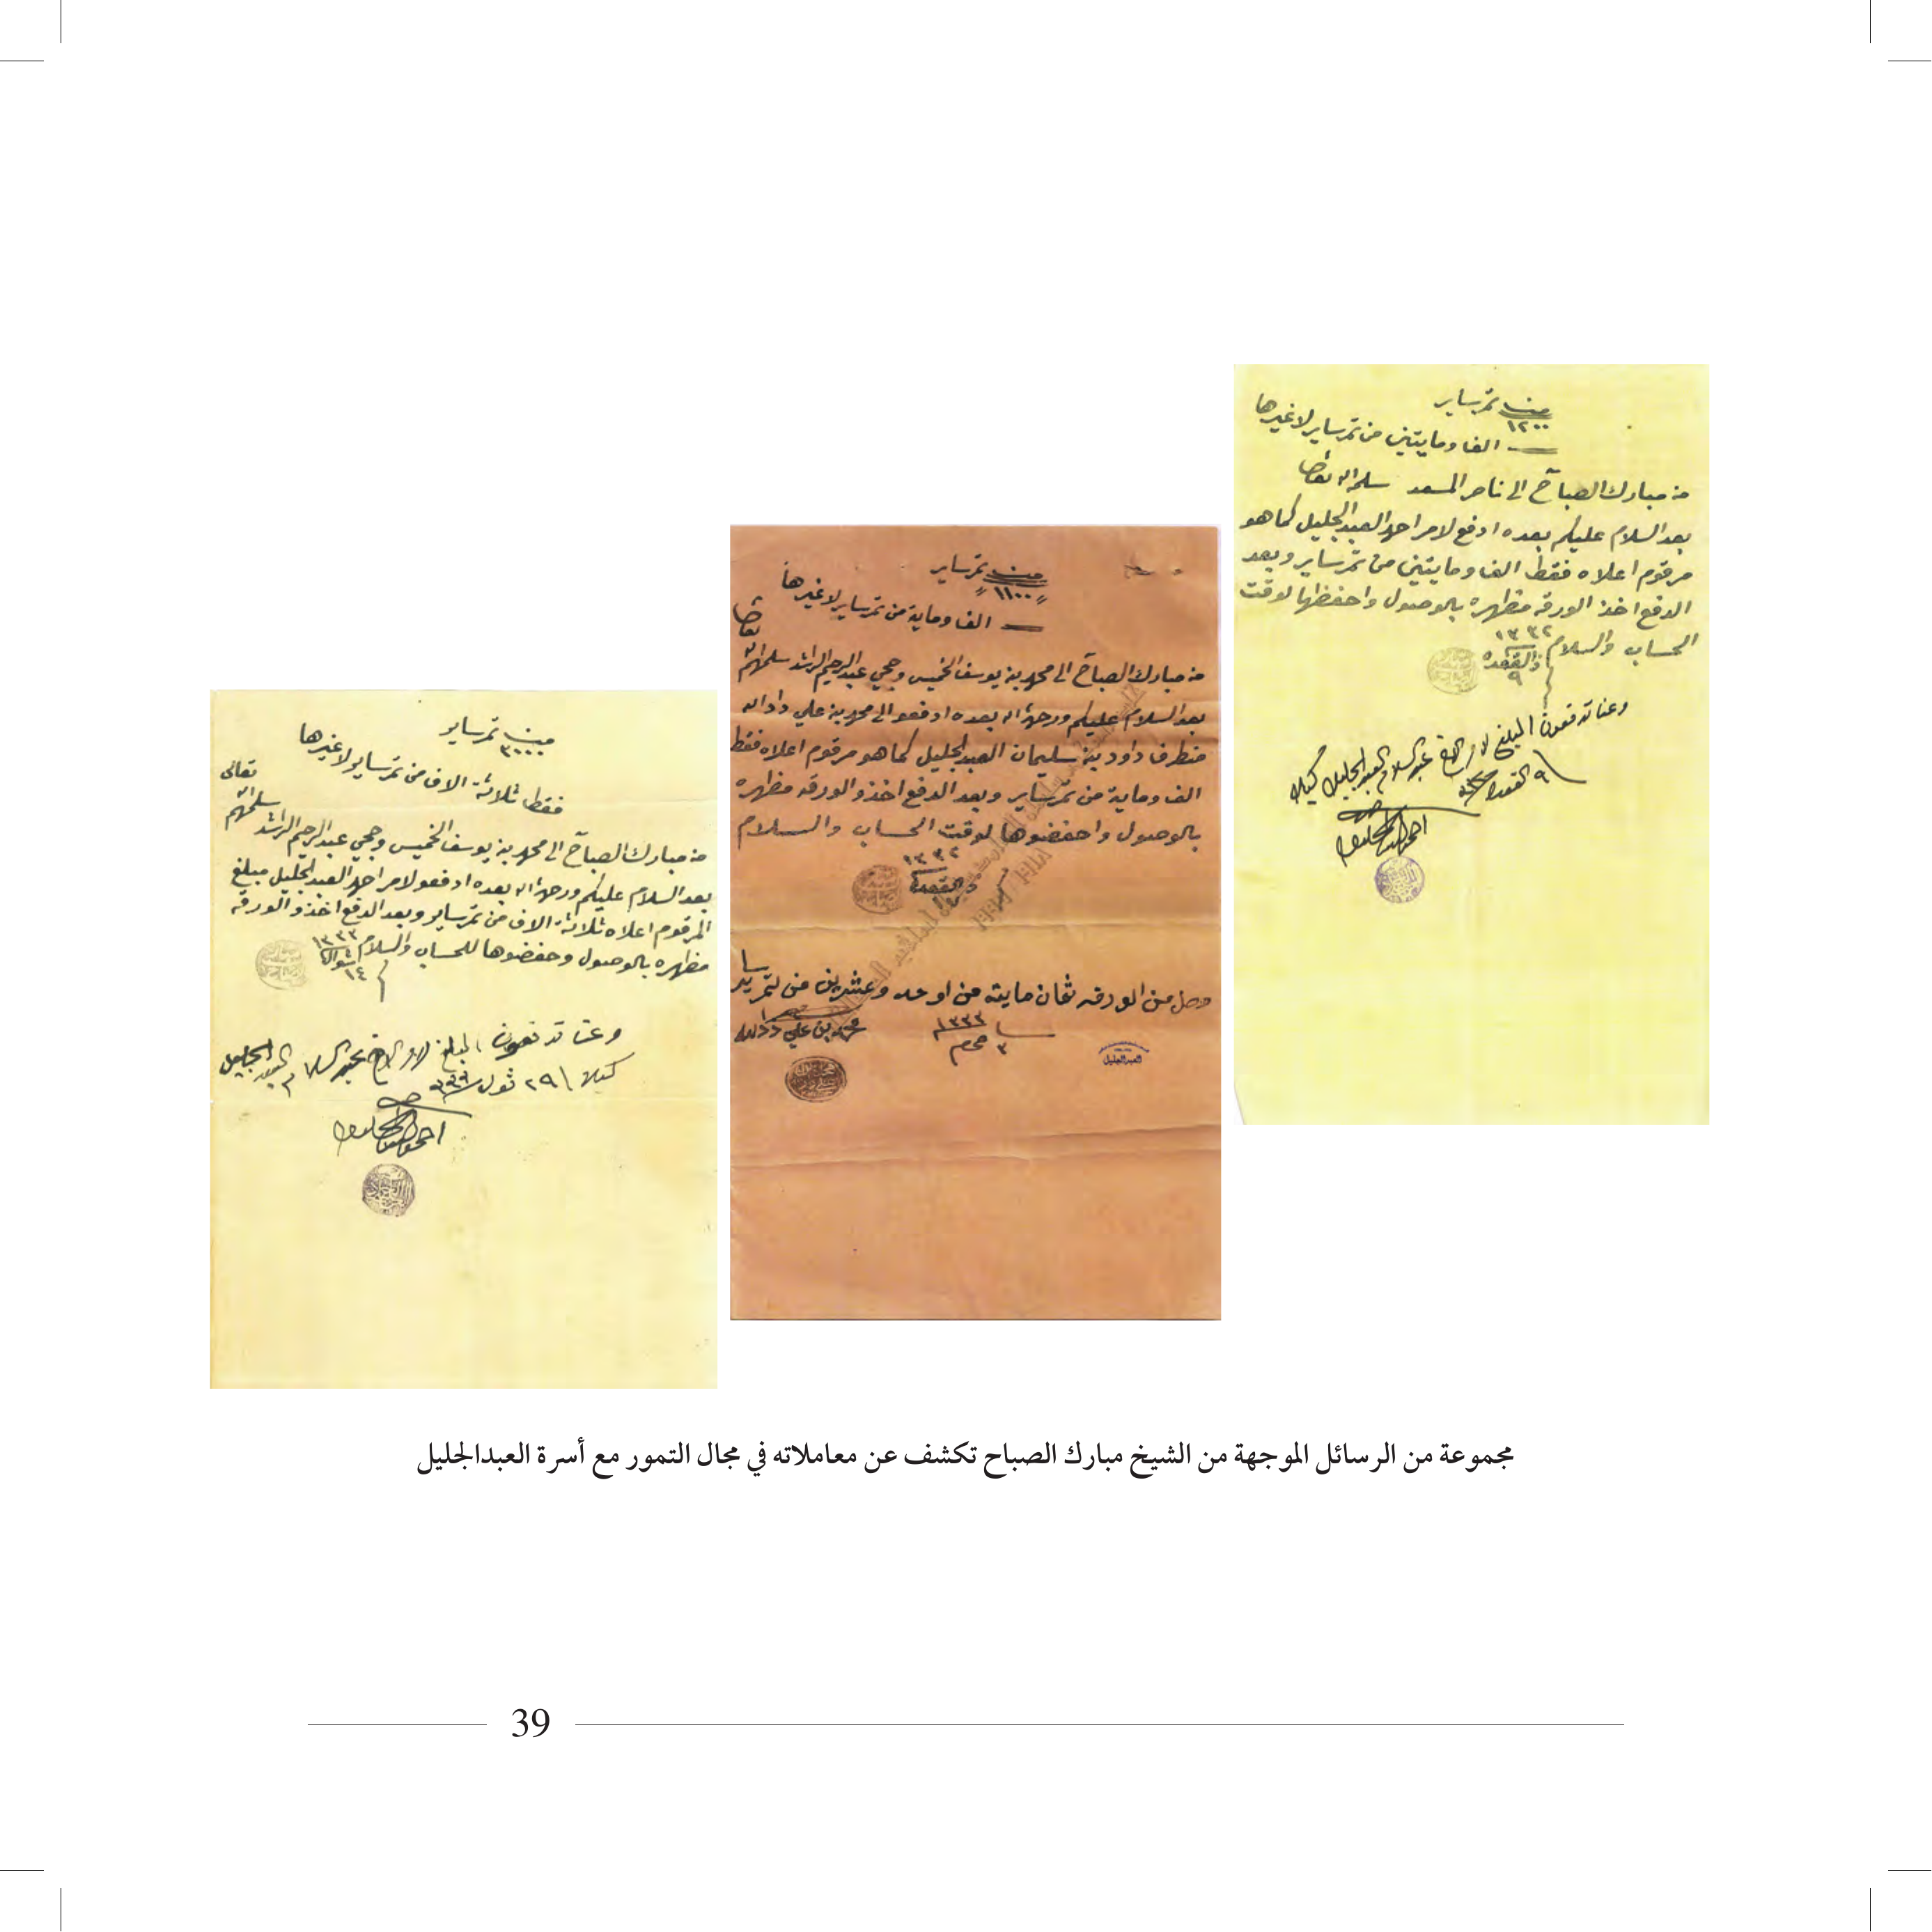 من تمر ساير
١٢٠٠
الف ومايتين من تمر ساير لاغيرها
من مبارك الصباح الى ناصر المسعد سلمه الله تعالى
بعد السلام عليكم بعده ادفع لامر احمد العبدالجليل كما هو
مرقوم اعلاه فقط الف ومايتين من تمر ساير وبعد
الدفع اخذ الورقه مظهره بالوصول واحفظها لوقت
الحساب والسلام ١٣٣٢
ذالقعده
٩
وعنا تدفعون المبلغ لامر الاخ عبدالسلام العبدالجليل كيلا
٩ القعده
احمد العبدالجليل
من تمر ساير
١١٠٠
الف وماية من تمر ساير لاغيرها
من مبارك الصباح الى محمد بن يوسف الخميس وحجي عبدالرحيم الراشد سلمهم الله تعالى
بعد السلام عليكم ورحمة الله بعده ادفعو الى محمد بن علي دادالله
منطرف داود بن سليمان العبدالجليل كما هو مرقوم اعلاه فقط
الف وماية من تمر ساير وبعد الدفع اخذو الورقه مظهره
بالوصول واحفضوها لوقت الحساب والسلام
١٣٣٢
ذالقعده
وصل من الورقه ثمان مايته من او حد وعشرين من تمر ساير
محمد بن علي ددالله
١٣٣٣
٣ محرم
العبدالجليل
من تمر ساير
٣٠٠٠
فقط ثلاثة الاف من تمر ساير لاغيرها
من مبارك الصباح الى محمد بن يوسف الخميس وحجي عبدالرحيم الراشد سلمهم الله تعالى
بعد السلام عليكم ورحمة الله بعده ادفعو لامر احمد العبدالجليل مبلغ
المرقوم اعلاه ثلاثة الاف من تمر ساير وبعد الدفع اخذو الورقه
مظهره بالوصول وحفضوها للحساب والسلام ١٣٣٣
شوال
١٤
وعنا تدفعون المبلغ لامر الاخ عبدالسلام العبدالجليل
كيلا ٢٩ شول
احمد العبدالجليل
مجموعة من الرسائل الموجهة من الشيخ مبارك الصباح تكشف عن معاملاته في مجال التمور مع أسرة العبدالجليل
39